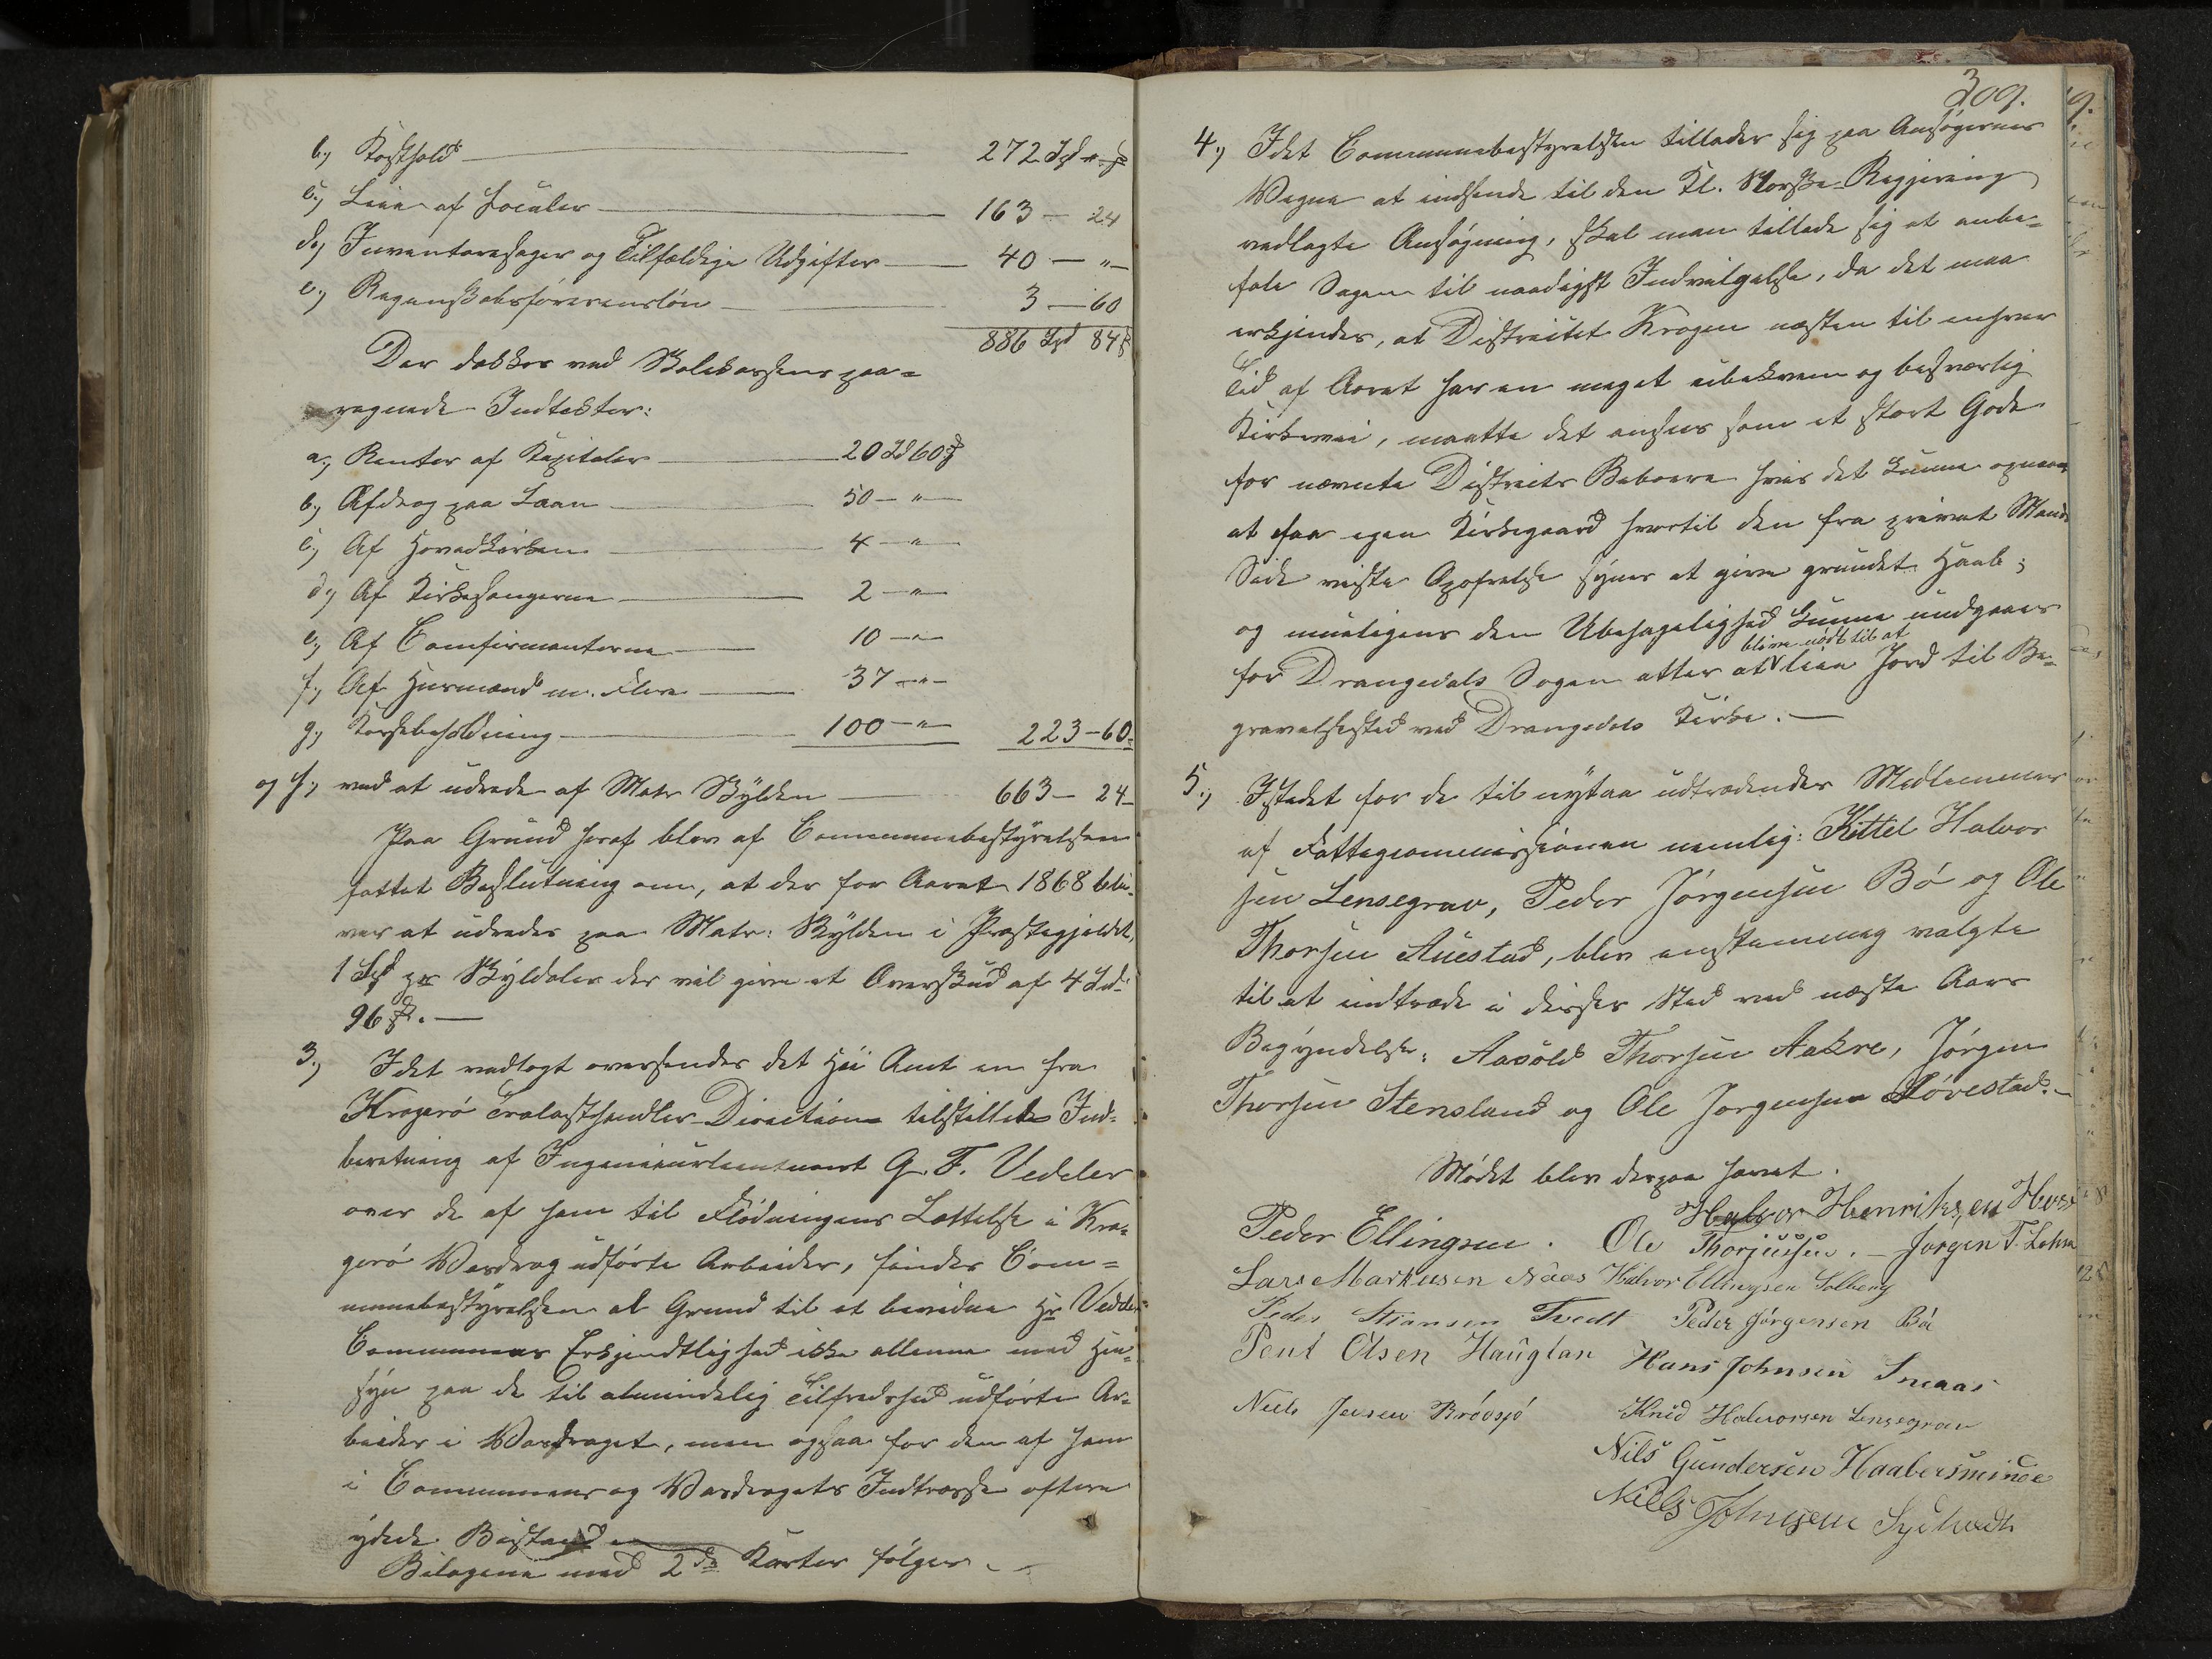 b., Kosthold — 272 Spd „ ß
c., Leie af Localer — 163 — 24
d., Inventaresager og Tilfældige Udgifter — 40 — „ —
e., Regnskabsførerensløn — 3 — 60
886 Spd 84 ß
Der dækkes ved Skolekassens paa=
regnede Indtekter:
a., Renter af Kapitaler — 20 Spd 60 ß
b., Afdrag paa Laan — 50 — „ —
c., Af Hovedkirken — 4 — „ —
d., Af Kirkesangerne — 2 — „ —
e., Af Comfirmanterne — 10 — „ —
f., Af Husmænd m. Flere — 37 — „ —
g., Kassebeholdning — 100 — „ — 223 — 60.
og h., ved at udrede af Matr Skylden — 663 — 24 —
Paa Grund heraf blev af Communebestyrelsen
fattet Beslutning om, at der for Aaret 1868 bli-
ver at udredes paa Matr: Skylden i Præstegjeldet,
1 Spd pr Skyldaler der vil give et Overskud af 4 Spd
96 ß. —
3., Idet vedlagt oversendes det Høie Amt en fra
Kragerø Trælasthandler-Direction tilstillede Ind=
beretning af Ingenieurlieutnant G. F. Vedeler
over de af ham til Flødningens Lettelse i Kra=
gerø Vasdrag udførte Arbeider, finder Com=
munebestyrelsen al Grund til at bevidne Hr Vedeler
Communens Erkjendtlighed ikke allene med Hen=
syn paa de til almindelig Tilfredshed udførte Ar=
beider i Vasdraget, men ogsaa for den af ham
i Communens og Vasdragets Intresse oftere
ydede Bistand
Bilagene med 2de Karter følger. —
309.
4., Idet Communebestyrelsen tillader sig paa Ansøgernes
Vegne at indsende til den Kl. Norske Regjering
vedlagte Ansøgning, skal man tillade sig at anbe=
fale Sagen til naadigst Indvilgelse, da det maa
erkjendes, at Distrektet Kragen næsten til enhver
Tid af Aaret har en meget ubekvem og besværlig
Kirkevei, maatte det ansees som et stort Gode
for nævnte Distrikts Beboere hvis det kunne opnaaes
at faa egen Kirkegaard hvortil den fra privat Mands
Side viiste Opofrelse synes at give grundet Haab;
og mueligens den Ubehagelighed kunne undgaaes
blive nødt til at
for Drangedals Sogn atter at leie Jord til Be=
gravelsessted ved Drangedals Kirke. —
5., Istedet for de til nytaar udtrædender Medlemmer
af Fattigcommissionen nemlig: Kittel Halvor
sen Lensegrav, Peder Jørgensen Bø og Ole
Thorsen Auestad, blev enstemmeg valgte
til at indtræde i disses Sted ved næste Aars
Begyndelse: Aavold Thorsen Aakre, Jørgen
Thorsen Stensland og Ole Jørgensen Støvestad. —
Mødet blev derpaa hævet.
Halvor Henriksen
Peder Ellingsen. Ole Thorjussen. — Jørgen T. Lohn
Lars Markusen Naas Halvor Ellingsen Solberg
Peder Stiansen Tvedt Peder Jørgensen Bø
Pent Olsen Hauglan Hans Johnsen Smaas
Niels Jensen Brødsjø Knud Halvorsen Lensegrav
Nils Gundersen Haabersminde
Niels Johnsen